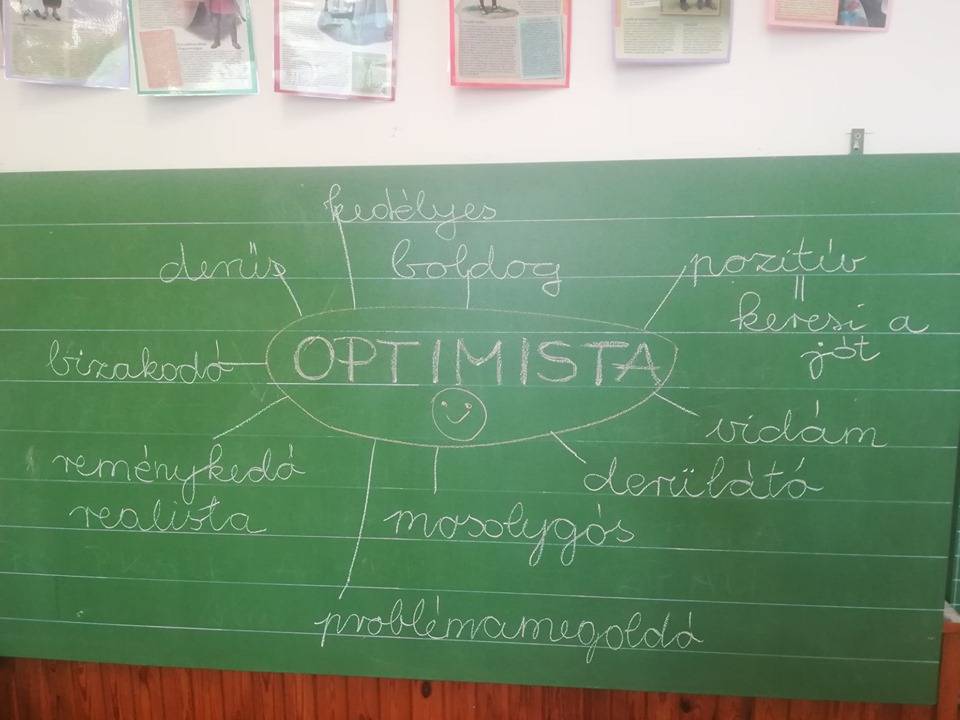 kedélyes
derűs
boldog
pozitív
=
keresi a
jót
OPTIMISTA
bizakodó
vidám
reménykedő
realista
derülátó
mosolygós
problémamegoldó